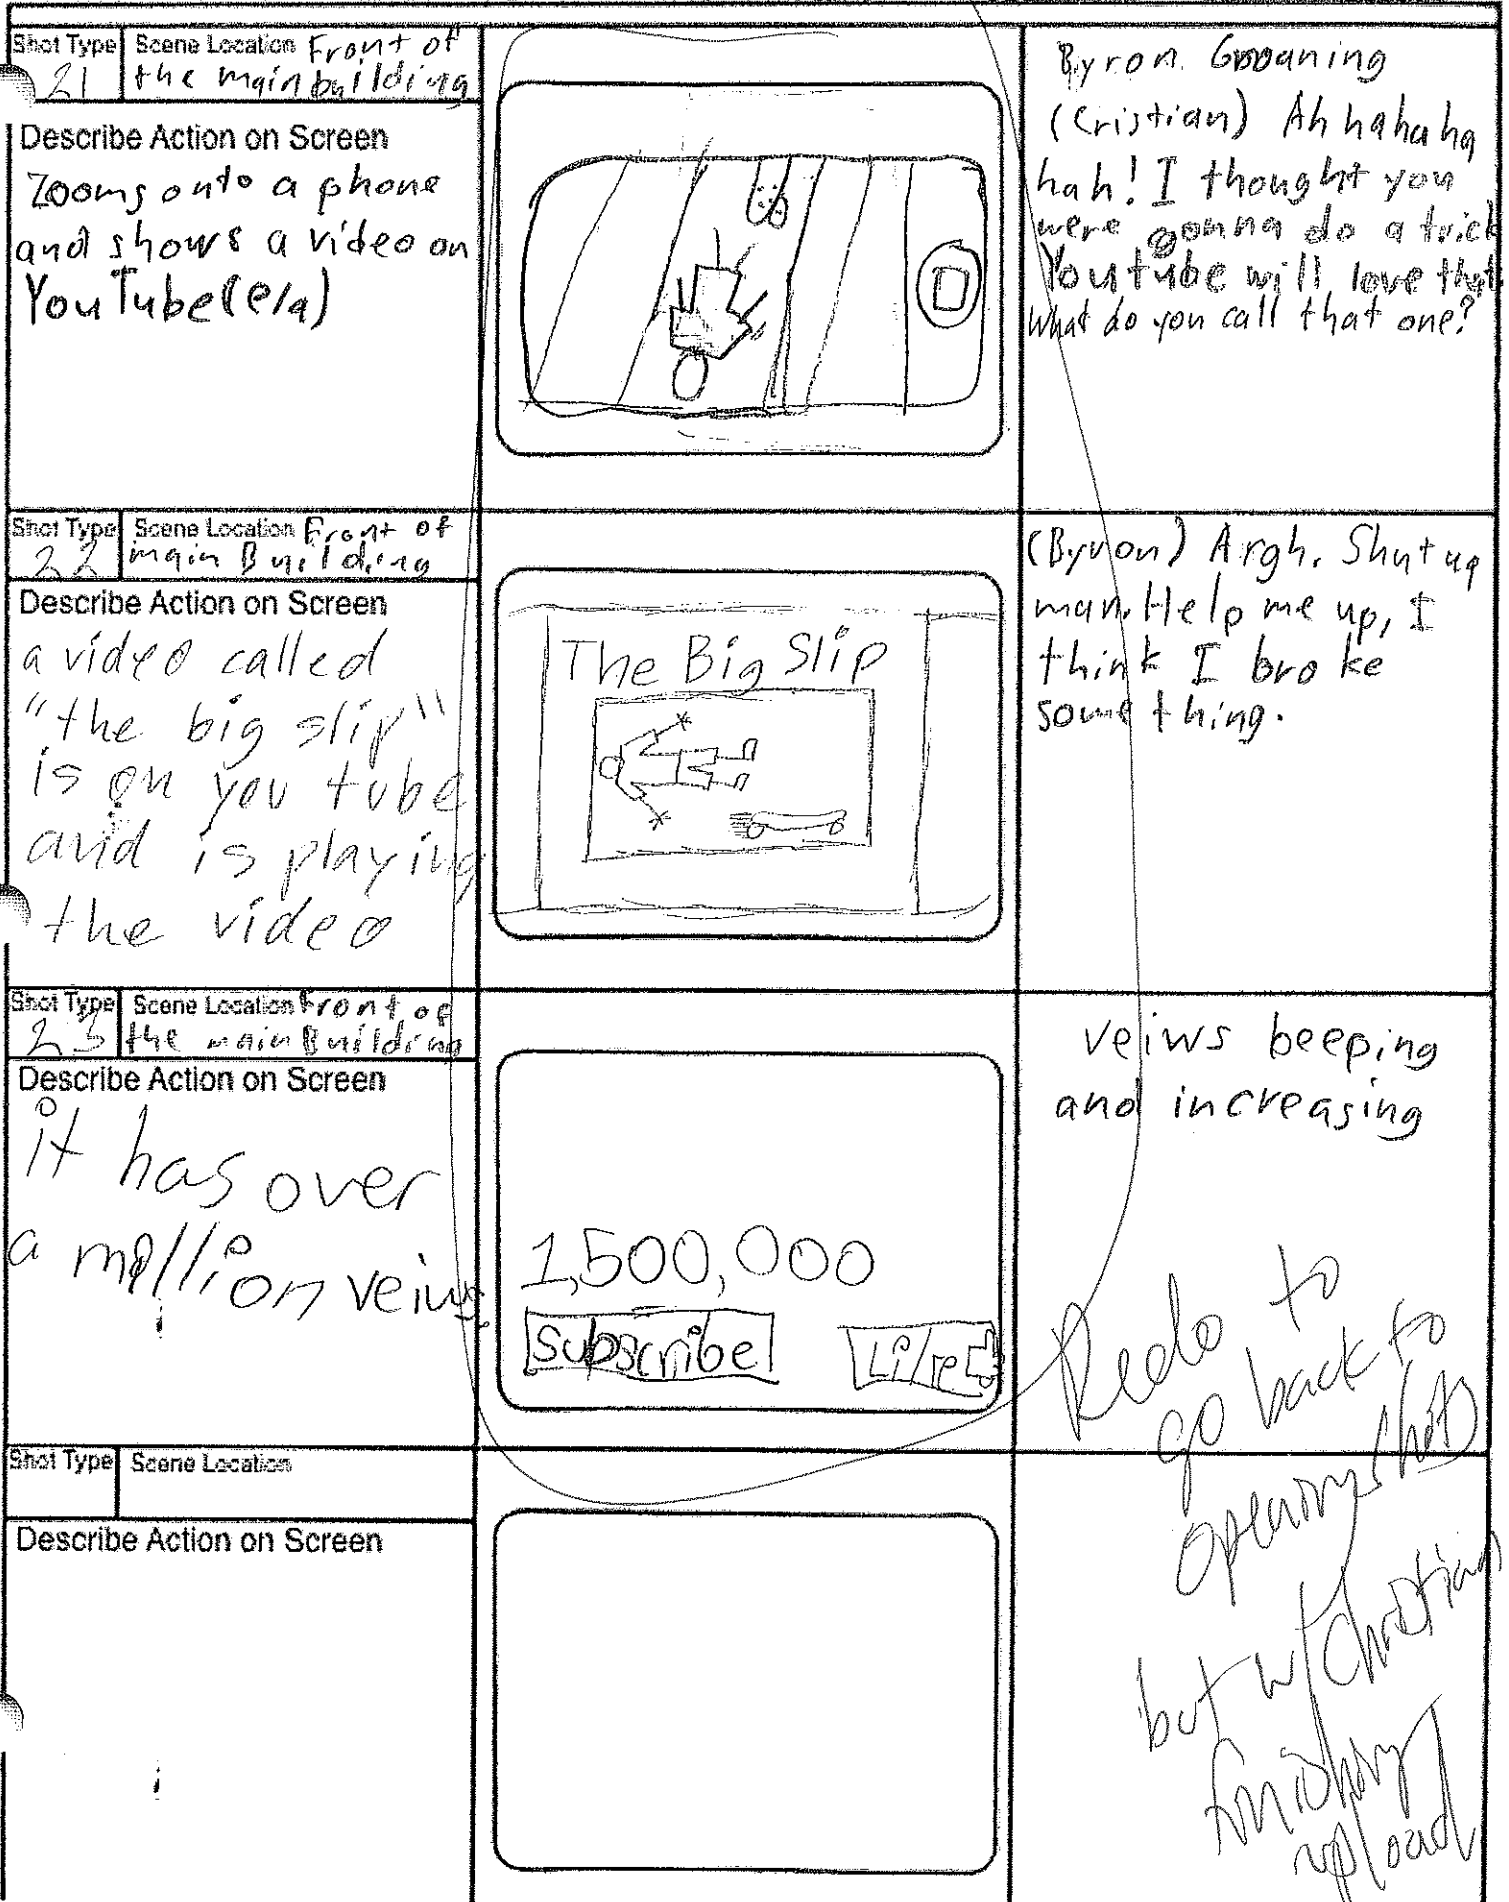 Shot Type
21
Scene Location Front of
the main building
Describe Action on Screen
Zooms onto a phone
and shows a video on
YouTube(e/a)
Byron Groaning
(Cristian) Ah hahaha
hah! I thought you
were gonna do a trick
Youtube will love that.
What do you call that one?
Shot Type
22
Scene Location Front of
main Building
Describe Action on Screen
a video called
"the big slip"
is on you tube
and is playing
the video
The Big Slip
(Byron) Argh. Shut up
man. Help me up, I
think I broke
something.
Shot Type
23
Scene Location Front of
the main Building
Describe Action on Screen
it has over
a million veiws
1,500,000
Subscribe
Like
veiws beeping
and increasing
Redo to
go back to
opening shots
but w/ Christian
finishing
upload
Shot Type
Scene Location
Describe Action on Screen